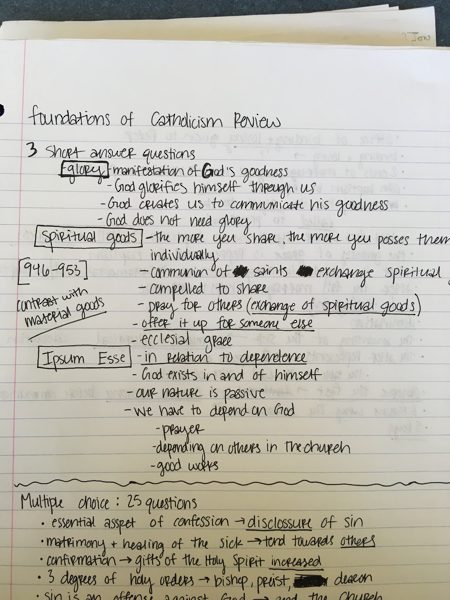 foundations of Catholicism Review
3 short answer questions
glory - manifestation of God's goodness
- God glorifies himself through us
- God creates us to communicate his goodness
- God does not need glory
Spiritual goods - the more you share, the more you posses them
individually.
[946-953] - communion of saints exchange spiritual
- compelled to share
contrast with material goods
- pray for others (exchange of spiritual goods)
- offer it up for someone else
- ecclesial grace
Ipsum Esse - in relation to dependence
- God exists in and of himself
- our nature is passive
- we have to depend on God
- prayer
- depending on others in the church
- good works
Multiple choice: 25 questions
• essential asspet of confession → disclosure of sin
• matrimony + healing of the sick → tend towards others
• confirmation → gifts of the Holy Spirit increased
• 3 degrees of holy orders → bishop, preist, deacon
• sin is an offense against God → and the church